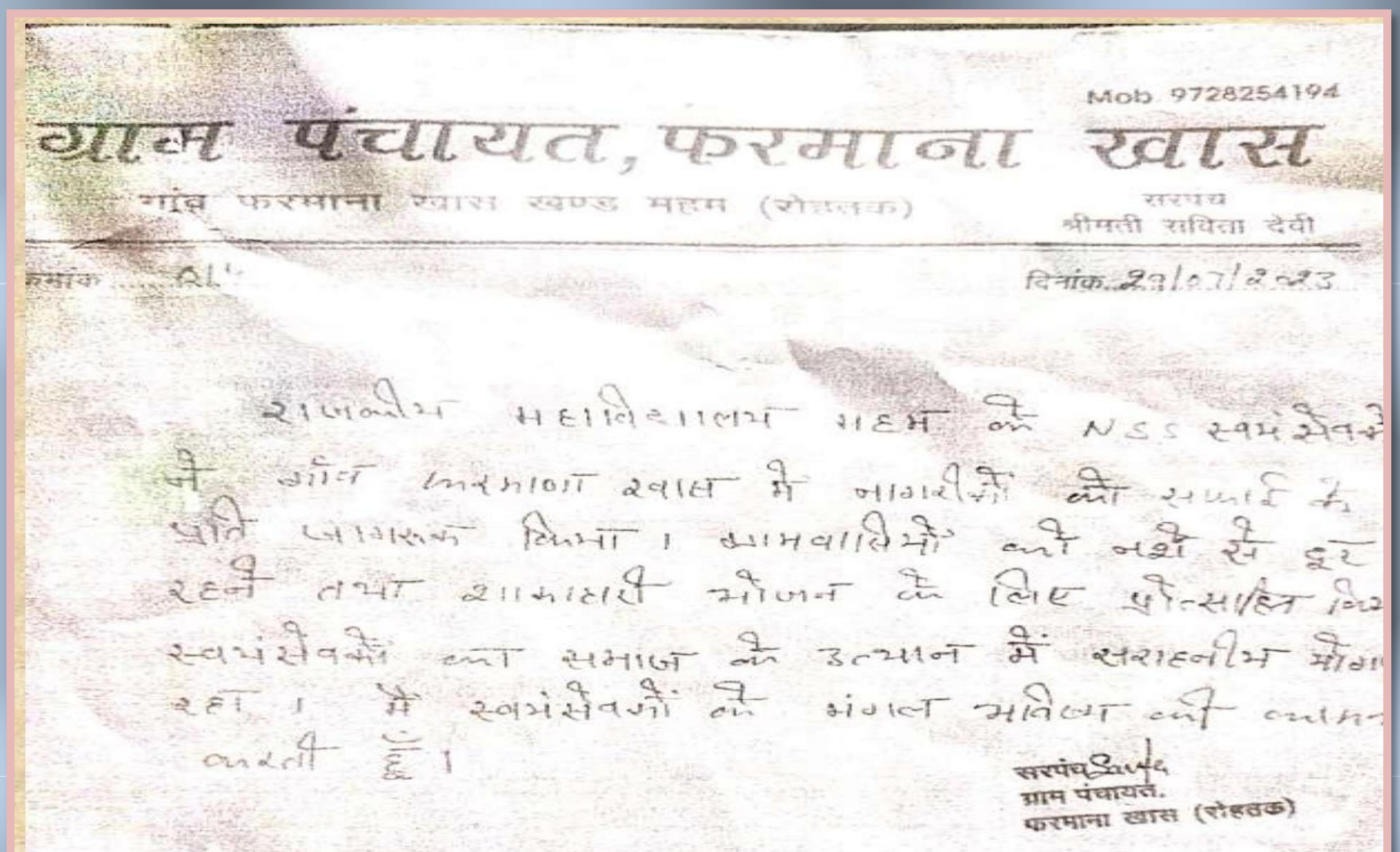 Mob 9728254194
ग्राम पंचायत, फरमाना खास
गांव फरमाना खास खण्ड महम (रोहतक)
सरपंच
श्रीमती सविता देवी
क्रमांक
दिनांक 29/07/2023
राजकीय महाविद्यालय महम के NSS स्वयंसेवको
ने गाँव फरमाणा खास में नागरीकों को सफाई के
प्रति जागरूक किया । ग्रामवासियों को नशे से दूर
रहने तथा शाकाहारी भोजन के लिए प्रोत्साहित किय
स्वयंसेवकों का समाज के उत्थान में सराहनीय योग
रहा । मैं स्वयंसेवकों के मंगल भविष्य की कामन
करती हूँ ।
सरपंच
ग्राम पंचायत,
फरमाना खास (रोहतक)